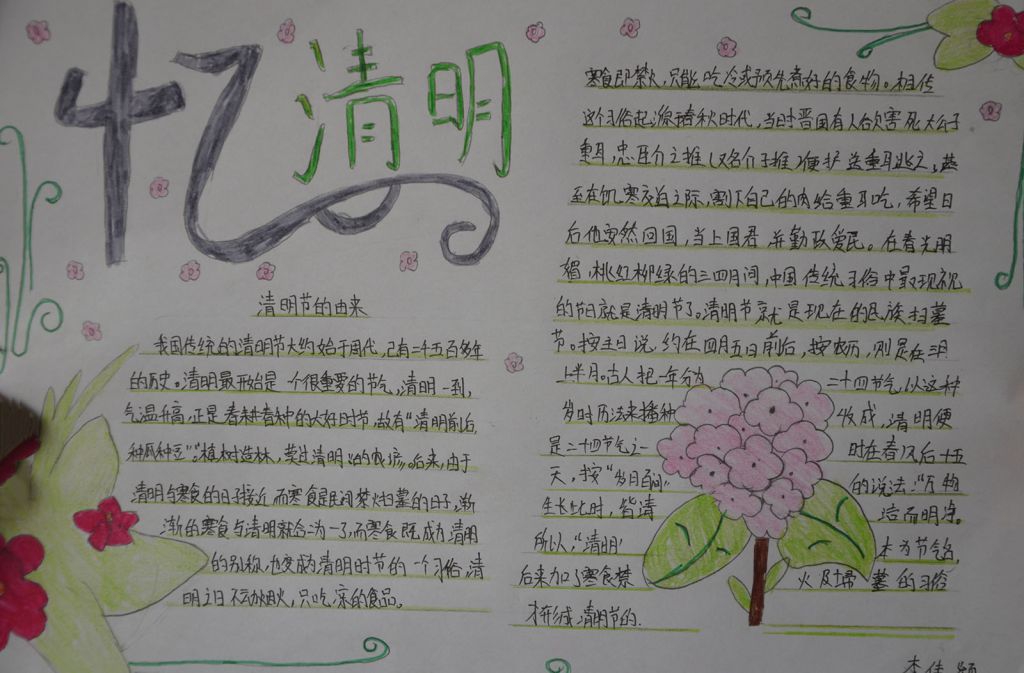 忆清明
清明节的由来
我国传统的清明节大约始于周代,已有二千五百多年
的历史。清明最开始是一个很重要的节气,清明一到,
气温升高,正是春耕春种的大好时节,故有“清明前后,
种瓜种豆”。“植树造林,莫过清明”的农谚。后来,由于
清明与寒食的日子接近,而寒食是民间禁火扫墓的日子,渐
渐的寒食与清明就合为一了,而寒食既成为清明
的别称,也变成为清明时节的一个习俗,清
明之日不动烟火,只吃凉的食品。
寒食即禁火,只能吃冷或预先煮好的食物。相传
这个习俗起源春秋时代,当时晋国有人欲害死大公子
重耳,忠臣介之推(又名介子推)便护送重耳逃亡,甚
至在饥寒交迫之际,割下自己的肉给重耳吃,希望日
后他要然回国,当上国君并勤政爱民。在春光明
媚,桃红柳绿的三四月间,中国传统习俗中最现视
的节日就是清明节了。清明节就是现在的民族扫墓
节。按主日说,约在四月五日前后,按农历,则是在三月
上半月。古人把一年分为二十四节气,以这种
岁时历法来播种收成,清明便
是二十四节气之一时在春风后十五
天,按“岁月百问”的说法:“万物
生长此时,皆清洁而明净。
所以“清明”本为节气名
后来加了寒食禁火及扫墓的习俗
才形成清明节的.
李佳颖